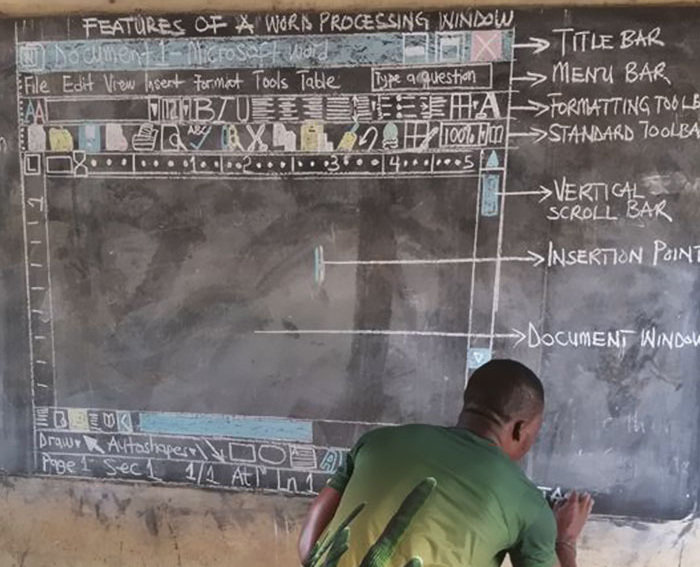 FEATURES OF A WORD PROCESSING WINDOW
Document 1 - Microsoft Word
TITLE BAR
File Edit View Insert Format Tools Table
Type a question
MENU BAR
AA
12
B I U
A
FORMATTING TOOLB
ABC
100%
STANDARD TOOLBA
L
1 2 3 4 5
VERTICAL
SCROLL BAR
1
INSERTION POINT
DOCUMENT WINDOW
Draw Autoshapes
A
Page 1 Sec 1 1/1 At 1" Ln 1